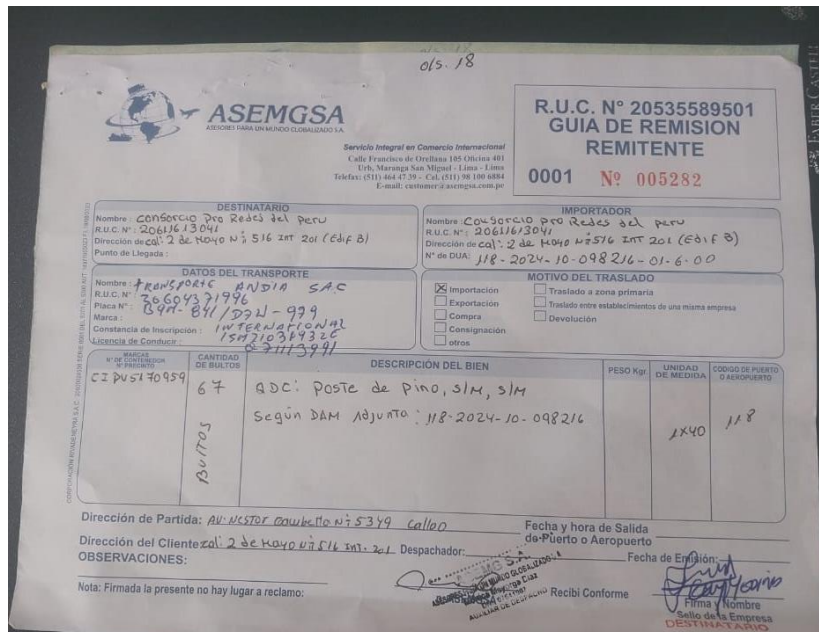 o/s. 18
ASEMGSA
ASESORES PARA UN MUNDO GLOBALIZADO S.A.
Servicio Integral en Comercio Internacional
Calle Francisco de Orellana 105 Oficina 401
Urb, Maranga San Miguel - Lima - Lima
Telefax: (511) 464 47 39 - Cel. (511) 98 100 6884
E-mail: customer@asemgsa.com.pe
R.U.C. N° 20535589501
GUIA DE REMISION
REMITENTE
0001 Nº 005282
DESTINATARIO
Nombre: Consorcio Pro Redes del Peru
R.U.C. N°: 20611613041
Dirección de cal: 2 de Mayo N° 516 INT 201 (Edif B)
Punto de Llegada:
IMPORTADOR
Nombre: Consorcio Pro Redes del Peru
R.U.C. N°: 20611613041
Dirección de cal: 2 de Mayo N° 516 INT 201 (Edif B)
N° de DUA: 118-2024-10-098216-01-6-00
DATOS DEL TRANSPORTE
Nombre: TRANSPORTE ANDIA SAC
R.U.C. N° 20604371996
Placa N°:
Marca: INTERNATIONAL
Constancia de Inscripción:
Licencia de Conducir:
MOTIVO DEL TRASLADO
Importación
Exportación
Compra
Consignación
otros
Traslado a zona primaria
Traslado entre establecimientos de una misma empresa
Devolución
MARCAS
N° DE CONTENEDOR
N° PRECINTO
CANTIDAD
DE BULTOS
DESCRIPCIÓN DEL BIEN
PESO Kgr.
UNIDAD
DE MEDIDA
CODIGO DE PUERTO
O AEROPUERTO
67 BULTOS
ADC: Poste de pino, S/M, S/M
Según DAM Adjunta: 118-2024-10-098216
1x40
118
Dirección de Partida: AV. NESTOR Gambetta N° 5349 Callao
Fecha y hora de Salida
de Puerto o Aeropuerto
Dirección del Cliente: cal: 2 de Mayo N° 516 INT. 201
Despachador:
Fecha de Emisión:
OBSERVACIONES:
Nota: Firmada la presente no hay lugar a reclamo:
ASEMG S.A.
AUXILIAR DE DESPACHO
Recibi Conforme
Firma y Nombre
Sello de la Empresa
DESTINATARIO
FABER CASTELL